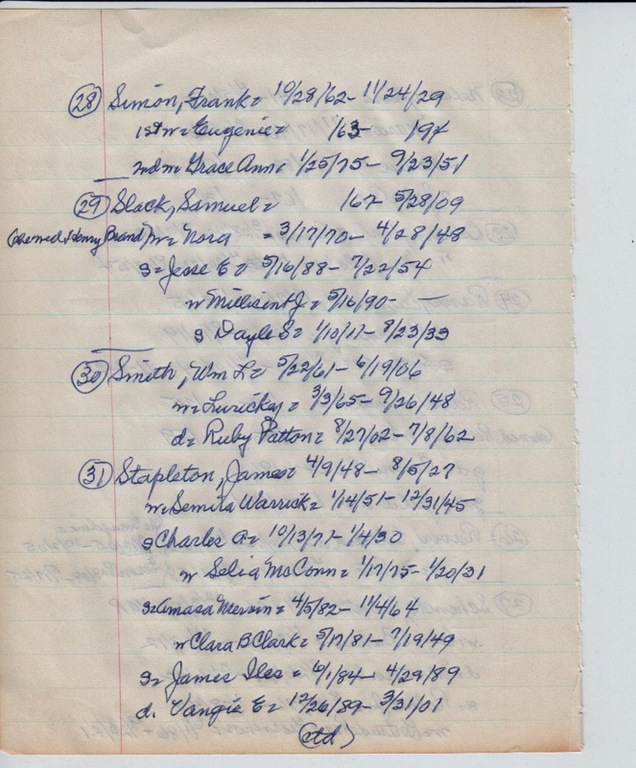 (28) Simon, Frank = 10/28/62 - 11/24/29
1st w = Eugenie = /63 - 19
2nd w = Grace Ann = 1/25/75 - 9/23/51
(29) Slack, Samuel = /67 - 5/28/09
Henry Brand) w = Nora = 3/17/70 - 4/28/48
s = Jesse E = 5/16/88 - 7/22/54
w Millisent J. = 5/16/90 - —
s Dayle S = 1/10/11 - 8/23/33
(30) Smith, Wm L = 5/22/61 - 6/19/06
w = = 3/3/65 - 9/26/48
d = Ruby Patton = 8/27/02 - 7/8/62
(31) Stapleton, James = 4/9/48 - 8/5/27
w = Semira Warrick = 1/14/51 - 12/31/45
s Charles A = 10/13/71 - 1/4/30
w Selia McConn = 1/17/75 - 1/20/31
s = Amasa Mervin = 4/5/82 - 11/4/64
w Clara B Clark = 5/17/81 - 7/19/49
s = James Iles = 6/1/84 - 4/29/89
d. Vangie E = 12/26/89 - 3/31/01
(ctd)